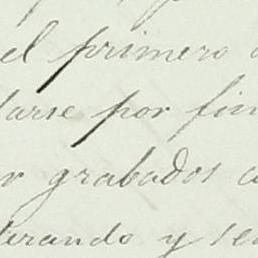 el primero
darse por fin
r grabados a
terando y se